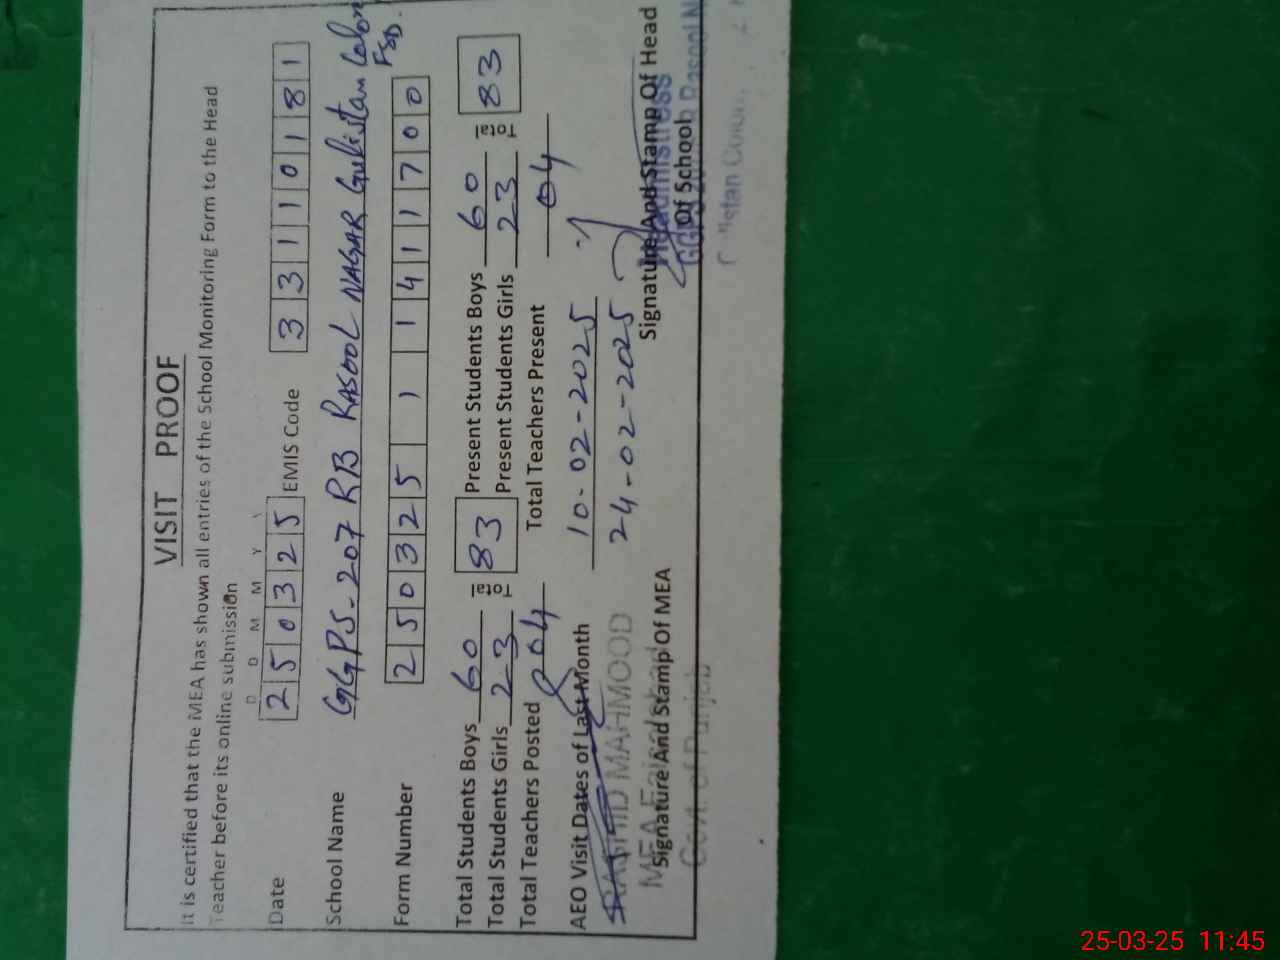 VISIT PROOF
It is certified that the MEA has shown all entries of the School Monitoring Form to the Head
Teacher before its online submission
D D M M Y Y
Date 2 5 0 3 2 5 EMIS Code 3 3 1 1 0 1 8 1
School Name GGPS-207 RB RASOOL NAGAR Gulistan Colony FSD.
Form Number 2 5 0 3 2 5 1 1 4 1 1 7 0 0
Total Students Boys 60 Total 83 Present Students Boys 60 Total 83
Total Students Girls 23 Present Students Girls 23
Total Teachers Posted 04 Total Teachers Present 04
AEO Visit Dates of Last Month 10-02-2025
24-02-2025
RASHID MAHMOOD
MEA Faisalabad
Signature And Stamp Of MEA
Govt. of Punjab
Signature And Stamp Of Head
Of School
Headmistress
Rasool N
25-03-25 11:45